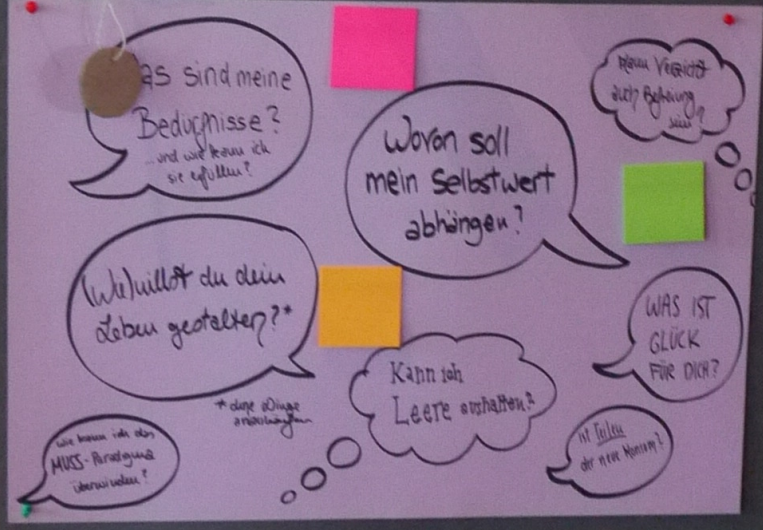 as sind meine
Bedürfnisse?
...und wie kann ich
sie erfüllen?
Wovon soll
mein Selbstwert
abhängen?
Kann Verzicht
auch Befreiung
sein?
(Wie) willst du dein
Leben gestalten?*
*ohne Dinge
anzuhäufen
WAS IST
GLÜCK
FÜR DICH?
Kann ich
Leere aushalten?
Wie kann ich das
MUSS-Paradigma
überwinden?
Ist Teilen
der neue Konsum?